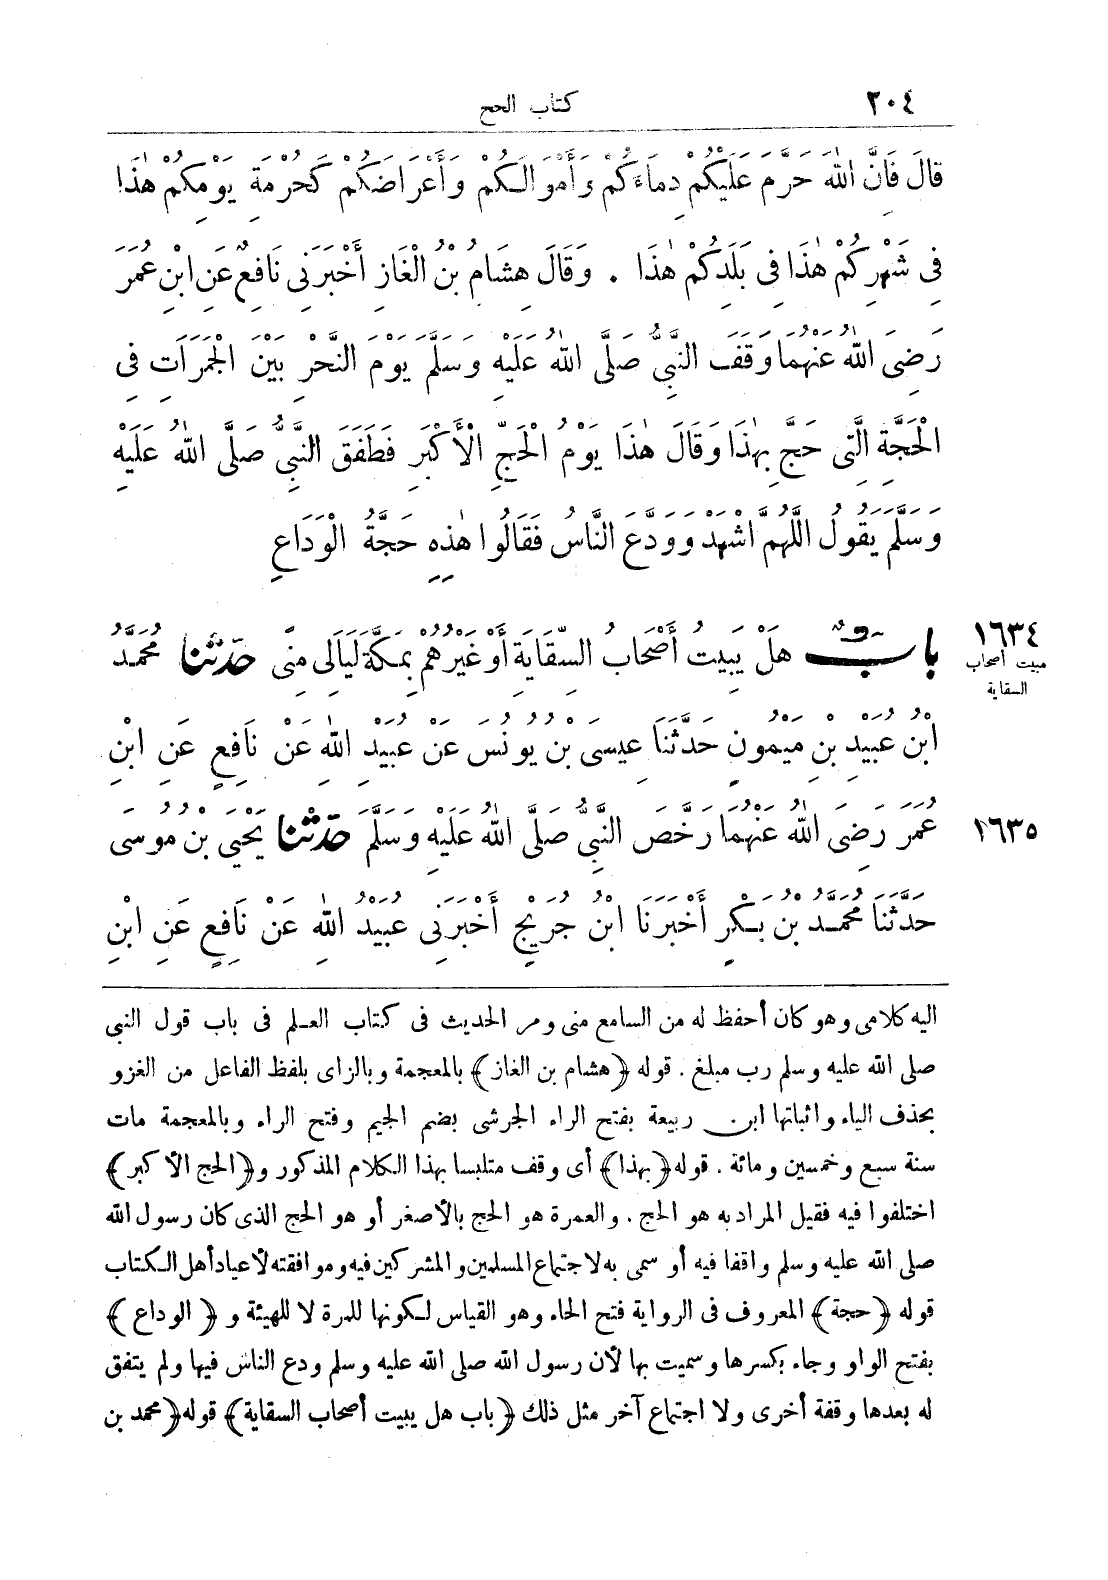 ٢٠٤ كتاب الحج
قَالَ فَإِنَّ اللّٰهَ حَرَّمَ عَلَيْكُمْ دِمَاءَكُمْ وَأَمْوَالَكُمْ وَأَعْرَاضَكُمْ كَحُرْمَةِ يَوْمِكُمْ هٰذَا
فِى شَهْرِكُمْ هٰذَا فِى بَلَدِكُمْ هٰذَا . وَقَالَ هِشَامُ بْنُ الْغَازِ أَخْبَرَنِى نَافِعٌ عَنِ ابْنِ عُمَرَ
رَضِىَ اللّٰهُ عَنْهُمَا وَقَفَ النَّبِىُّ صَلَّى اللّٰهُ عَلَيْهِ وَسَلَّمَ يَوْمَ النَّحْرِ بَيْنَ الْجَمَرَاتِ فِى
الْحَجَّةِ الَّتِى حَجَّ بِهٰذَا وَقَالَ هٰذَا يَوْمُ الْحَجِّ الْأَكْبَرِ فَطَفِقَ النَّبِىُّ صَلَّى اللّٰهُ عَلَيْهِ
وَسَلَّمَ يَقُولُ اللَّهُمَّ اشْهَدْ وَوَدَّعَ النَّاسَ فَقَالُوا هٰذِهِ حَجَّةُ الْوَدَاعِ
١٦٣٤ بَابٌ هَلْ يَبِيتُ أَصْحَابُ السِّقَايَةِ أَوْ غَيْرُهُمْ بِمَكَّةَ لَيَالِىَ مِنًى حَدَّثَنَا مُحَمَّدُ
مبيت أصحاب
السقاية
ابْنُ عُبَيْدِ بْنِ مَيْمُونٍ حَدَّثَنَا عِيسَى بْنُ يُونُسَ عَنْ عُبَيْدِ اللّٰهِ عَنْ نَافِعٍ عَنِ ابْنِ
١٦٣٥ عُمَرَ رَضِىَ اللّٰهُ عَنْهُمَا رَخَّصَ النَّبِىُّ صَلَّى اللّٰهُ عَلَيْهِ وَسَلَّمَ حَدَّثَنَا يَحْيَى بْنُ مُوسَى
حَدَّثَنَا مُحَمَّدُ بْنُ بَكْرٍ أَخْبَرَنَا ابْنُ جُرَيْجٍ أَخْبَرَنِى عُبَيْدُ اللّٰهِ عَنْ نَافِعٍ عَنِ ابْنِ
اليه كلامى وهو كان أحفظ له من السامع منى ومر الحديث فى كتاب العلم فى باب قول النبى
صلى الله عليه وسلم رب مبلغ . قوله ﴿هشام بن الغاز﴾ بالمعجمة وبالزاى بلفظ الفاعل من الغزو
بحذف الياء واثباتها ابن ربيعة بفتح الراء الجرشى بضم الجيم وفتح الراء وبالمعجمة مات
سنة سبع وخمسين ومائة . قوله ﴿بهذا﴾ أى وقف متلبسا بهذا الكلام المذكور و﴿الحج الأكبر﴾
اختلفوا فيه فقيل المراد به هو الحج . والعمرة هو الحج بالأصغر أو هو الحج الذى كان رسول الله
صلى الله عليه وسلم واقفا فيه أو سمى به لاجتماع المسلمين والمشركين فيه وموافقته لأعياد أهل الكتاب
قوله ﴿حجة﴾ المعروف فى الرواية فتح الحاء وهو القياس لكونها للمرة لا للهيئة و ﴿الوداع﴾
بفتح الواو وجاء بكسرها وسميت بها لأن رسول الله صلى الله عليه وسلم ودع الناس فيها ولم يتفق
له بعدها وقفة أخرى ولا اجتماع آخر مثل ذلك ﴿باب هل يبيت أصحاب السقاية﴾ قوله ﴿محمد بن